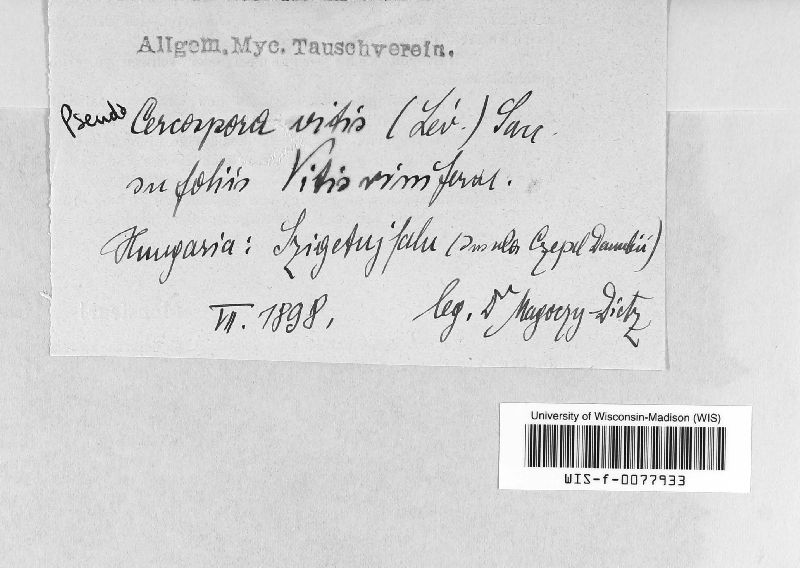 Allgem. Myc. Tauschverein.
Pseudo Cercospora vitis (Lév.) Sacc.
in foliis Vitis viniferae.
Hungaria: Szigetujfalu (insula Czepel Danubii)
VII. 1898. leg. Dr Magoczy-Dietz
University of Wisconsin-Madison (WIS)
WIS-f-0077933